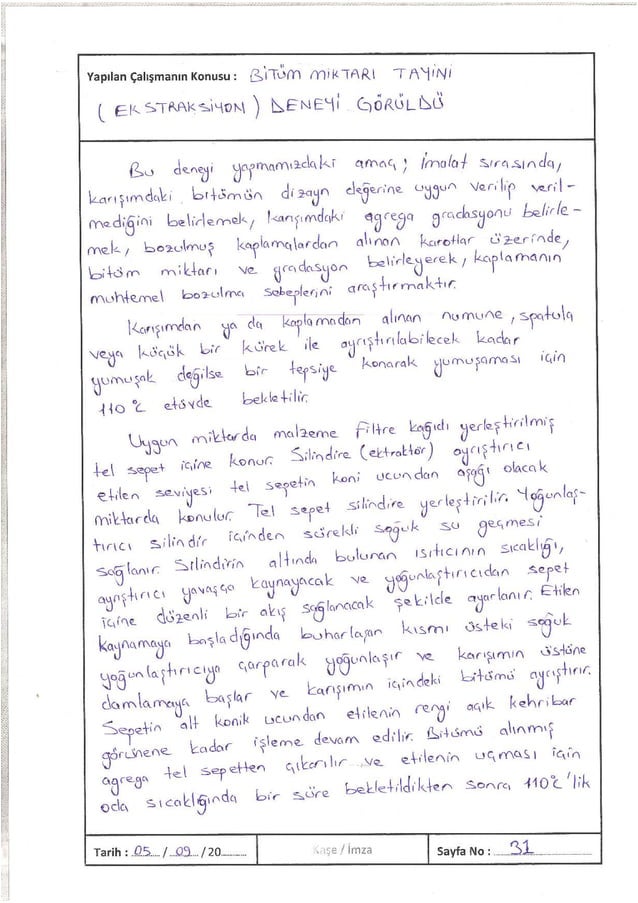 Yapılan Çalışmanın Konusu : BİTÜM MİKTARI TAYİNİ
(EKSTRAKSİYON) DENEYİ GÖRÜLDÜ
Bu deneyi yapmamızdaki amaç; İmalat sırasında,
karışımdaki bitümün dizayn değerine uygun verilip veril-
mediğini belirlemek, karışımdaki agrega gradasyonu belirle-
mek, bozulmuş kaplamalardan alınan karotlar üzerinde,
bitüm miktarı ve gradasyon belirleyerek, kaplamanın
muhtemel bozulma sebeplerini araştırmaktır.
Karışımdan ya da kaplamadan alınan numune, spatula
veya küçük bir kürek ile ayrıştırılabilecek kadar
yumuşak değilse bir tepsiye konarak yumuşaması için
110 °C etüvde bekletilir.
Uygun miktarda malzeme filtre kağıdı yerleştirilmiş
tel sepet içine konur. Silindire (ektraktör) ayrıştırıcı
etilen seviyesi tel sepetin koni ucundan aşağı olacak
miktarda konulur. Tel sepet silindire yerleştirilir. Yoğunlaş-
tırıcı silindir içinden sürekli soğuk su geçmesi
sağlanır. Silindirin altında bulunan ısıtıcının sıcaklığı,
ayrıştırıcı yavaşça kaynayacak ve yoğunlaştırıcıdan sepet
içine düzenli bir akış sağlanacak şekilde ayarlanır. Etilen
kaynamaya başladığında buharlaşan kısmı üsteki soğuk
yoğunlaştırıcıya çarparak yoğunlaşır ve karışımın üstüne
damlamaya başlar ve karışımın içindeki bitümü ayrıştırır.
Sepetin alt konik ucundan etilenin rengi açık kehribar
görünene kadar işleme devam edilir. Bitümü alınmış
agrega tel sepetten çıkarılır ve etilenin uçması için
oda sıcaklığında bir süre bekletildikten sonra 110°C'lik
Tarih : 05 / 09 / 20 Kaşe / İmza Sayfa No : 31